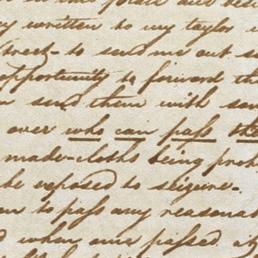 in the
written to my taylor
Street to send me out
opportunity to forward th
send them with
over who can pass the
made-cloths being pro
be exposed to seizure.
to pass any reasona
when once passed